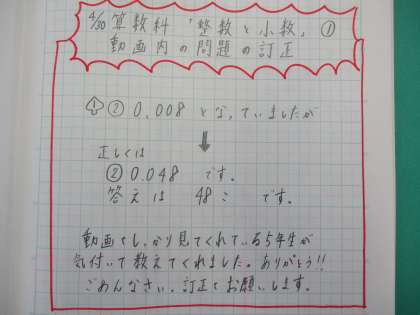 4/30 算数科「整数と小数」①
動画内の問題の訂正
① ② 0.008 となっていましたが
正しくは
② 0.048 です。
答えは 48こ です。
動画でしっかり見てくれている5年生が
気付いて教えてくれました。ありがとう!!
ごめんなさい。訂正をお願いします。